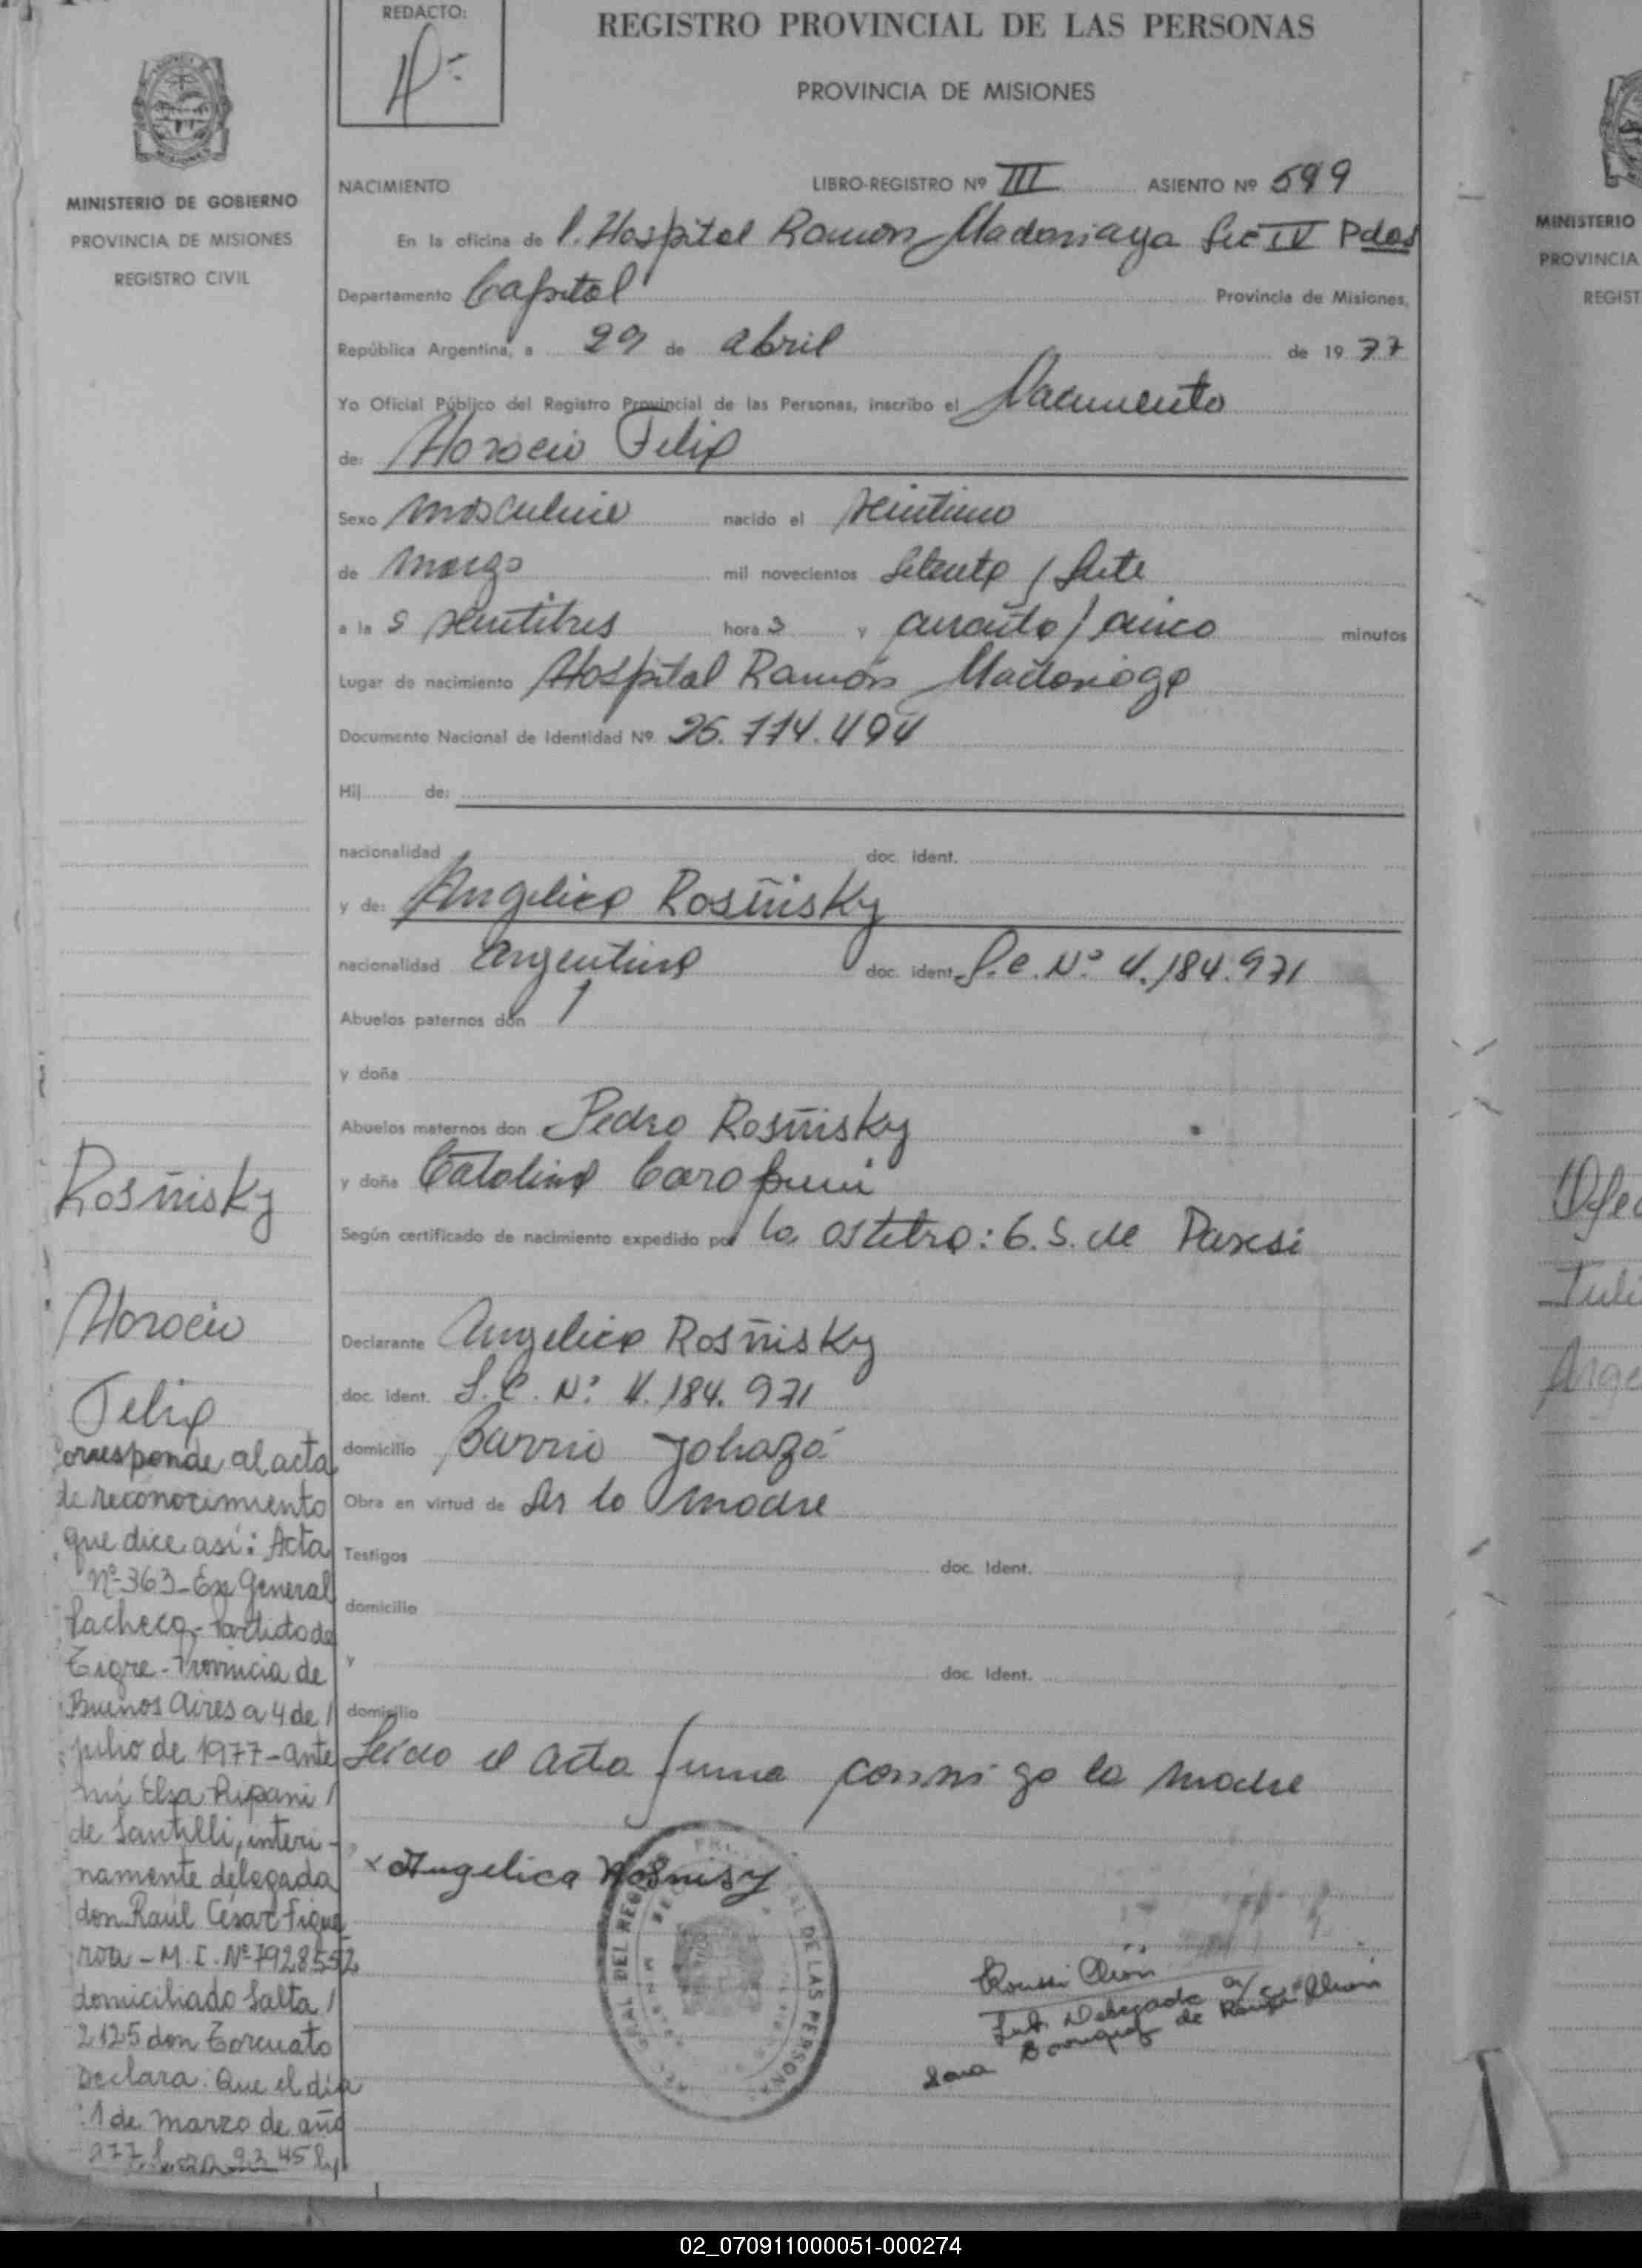 REDACTO:
REGISTRO PROVINCIAL DE LAS PERSONAS
PROVINCIA DE MISIONES
MINISTERIO DE GOBIERNO
PROVINCIA DE MISIONES
REGISTRO CIVIL
NACIMIENTO LIBRO-REGISTRO Nº III ASIENTO Nº 599
En la oficina de l. Hospital Ramon Madariaga Sec IV Pdas
Departamento Capital Provincia de Misiones,
República Argentina, a 29 de abril de 1977
Yo Oficial Público del Registro Provincial de las Personas, inscribo el Nacimiento
de: Horacio Felix
Sexo masculino nacido el veintiuno
de marzo mil novecientos setenta / siete
a la s veintitres hora s y cuarenta / cinco minutos
Lugar de nacimiento Hospital Ramón Madariaga
Documento Nacional de Identidad Nº 26.114.494
Hij de:
nacionalidad doc. ident.
y de: Angelica Rosñisky
nacionalidad argentina doc. ident. L.C. Nº 4.184.971
Abuelos paternos don
y doña
Abuelos maternos don Pedro Rosñisky
y doña Catalina
Según certificado de nacimiento expedido por la ostetra: G. S. de Paresi
Declarante Angelica Rosñisky
doc. ident. L.C. Nº 4.184.971
domicilio Barrio Yohazá
Obra en virtud de ser la madre
Testigos doc. Ident.
domicilio
y doc. Ident.
domicilio
Leido el acta firma conmigo la madre
x Angelica Rosnisy
DEL REGISTRO PROVINCIAL DE LAS PERSONAS
Sub Delegada a/c
Sara de
Rosñisky
Horacio
Felix
Corresponde al acta
de reconocimiento
que dice así: Acta
Nº 363- En General
Pacheco- Partido de
Tigre- Provincia de
Buenos Aires a 4 de /
julio de 1977- ante
mí Elsa Ripani /
de Santilli, interi-
namente delegada
don Raúl César Figue
roa - M. I. Nº 7928552
domiciliado Salta /
2125 don Torcuato
Declara: Que el día
1 de marzo de año
977 hora 23 45
MINISTERIO
PROVINCIA
REGIST
02_070911000051-000274